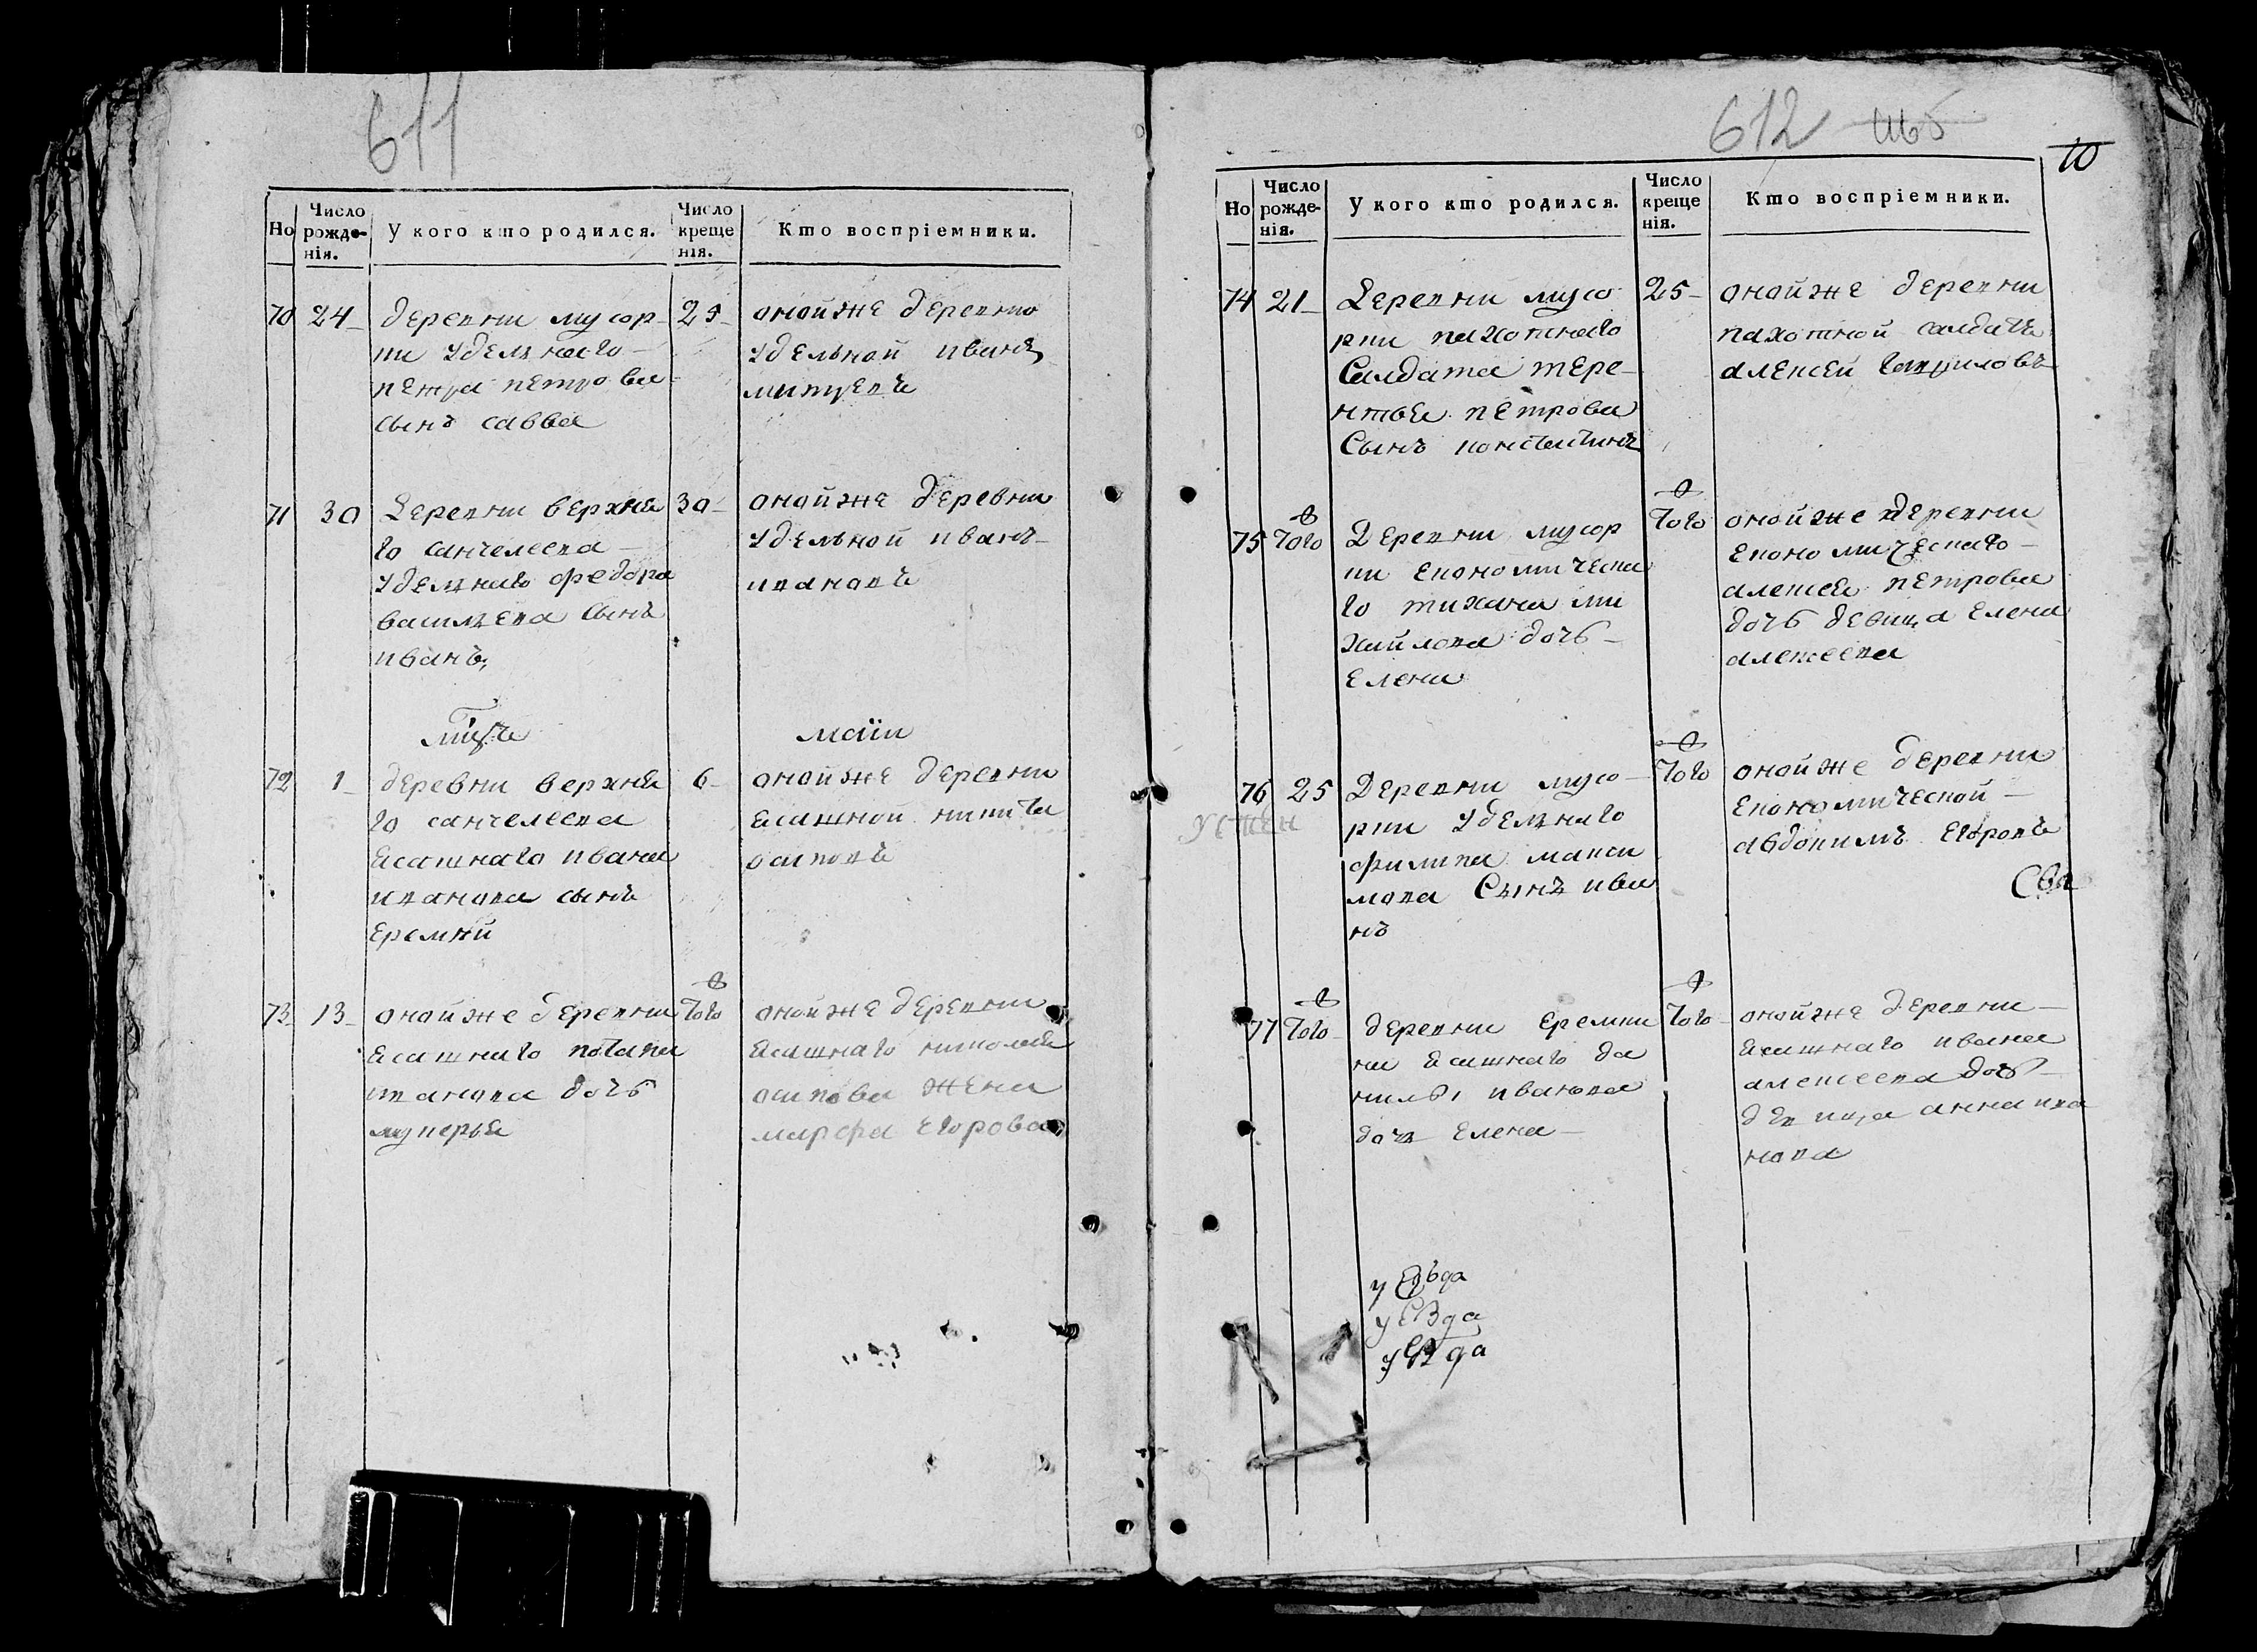 611
Но
Число рожде-нія.
У кого кто родился.
Число креще нія.
Кто воспріемники.
70 24
деревни мусор
ки удельнаго
петра петрова
сынъ савва
25
онойже деревни
удельной иванъ
71 30
Деревни верхня
го сančелеева
уделнаго федора
василева сынъ
иванъ
30
онойже деревни
удельной иванъ
ивановъ
маїи
72 1
деревни верхня
го санчелеева
ясашнаго ивана
иванова сынъ
еремѣй
6
онойже деревни
ясашной никита
осиповъ
73 13
онойже деревни
ясашнаго потапа
иванова дочь
лукерья
того
онойже деревни
ясашнаго николая
осипова жена
марфа егорова
612
10
Но
Число рожде-нія.
У кого кто родился.
Число креще нія.
Кто воспріемники.
74 21
Деревни мусо
рки пахотнаго
Салдата тере
нтья петрова
Сынъ констатинъ
25
онойже деревни
пахотной салдатъ
алексей гавриловъ
75 того
Деревни мусор
ки економическа
го тихана ми
хайлова дочь
елена
того
онойже деревни
економическаго
алексея петрова
дочь девица елена
алексеева
76 25
Деревни мусо
рки уделнаго
филипа макси
мова Сынъ ива
нъ
того
онойже деревни
економической
авдокимъ егоровъ
77 того
деревни еремки
на ясашнаго да
нилы иванова
дочь елена
того
онойже деревни
ясашнаго ивана
алексеева дочь
девица анна ива
нова
уезда